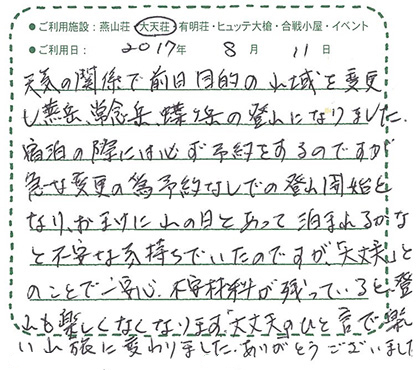 ●ご利用施設：燕山荘・大天荘・有明荘・ヒュッテ大槍・合戦小屋・イベント
●ご利用日： 2017年 8月 11日
天気の関係で前日目的の山域を変更
し燕岳、常念岳、蝶ヶ岳の登山になりました.
宿泊の際には必ず予約をするのですが
急な変更の為予約なしでの登山開始と
なり、おまけに山の日とあって泊まれるかな
と不安な気持ちでいたのですが、「大丈夫」と
のことで一安心. 不安材料が残っていると、登
山も楽しくなくなります「大丈夫」のひと言で楽し
い山旅に変わりました. ありがとうございました